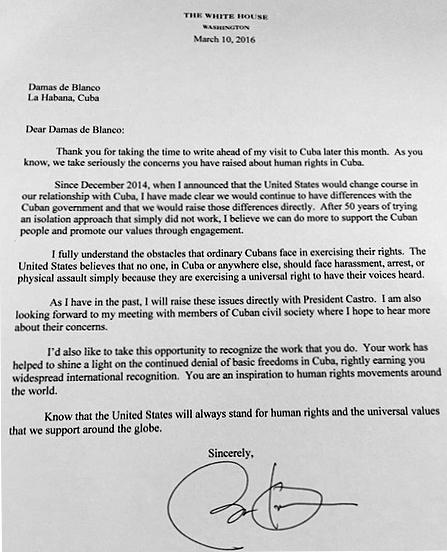 THE WHITE HOUSE
WASHINGTON
March 10, 2016
Damas de Blanco
La Habana, Cuba
Dear Damas de Blanco:
Thank you for taking the time to write ahead of my visit to Cuba later this month. As you
know, we take seriously the concerns you have raised about human rights in Cuba.
Since December 2014, when I announced that the United States would change course in
our relationship with Cuba, I have made clear we would continue to have differences with the
Cuban government and that we would raise those differences directly. After 50 years of trying
an isolation approach that simply did not work, I believe we can do more to support the Cuban
people and promote our values through engagement.
I fully understand the obstacles that ordinary Cubans face in exercising their rights. The
United States believes that no one, in Cuba or anywhere else, should face harassment, arrest, or
physical assault simply because they are exercising a universal right to have their voices heard.
As I have in the past, I will raise these issues directly with President Castro. I am also
looking forward to my meeting with members of Cuban civil society where I hope to hear more
about their concerns.
I'd also like to take this opportunity to recognize the work that you do. Your work has
helped to shine a light on the continued denial of basic freedoms in Cuba, rightly earning you
widespread international recognition. You are an inspiration to human rights movements around
the world.
Know that the United States will always stand for human rights and the universal values
that we support around the globe.
Sincerely,